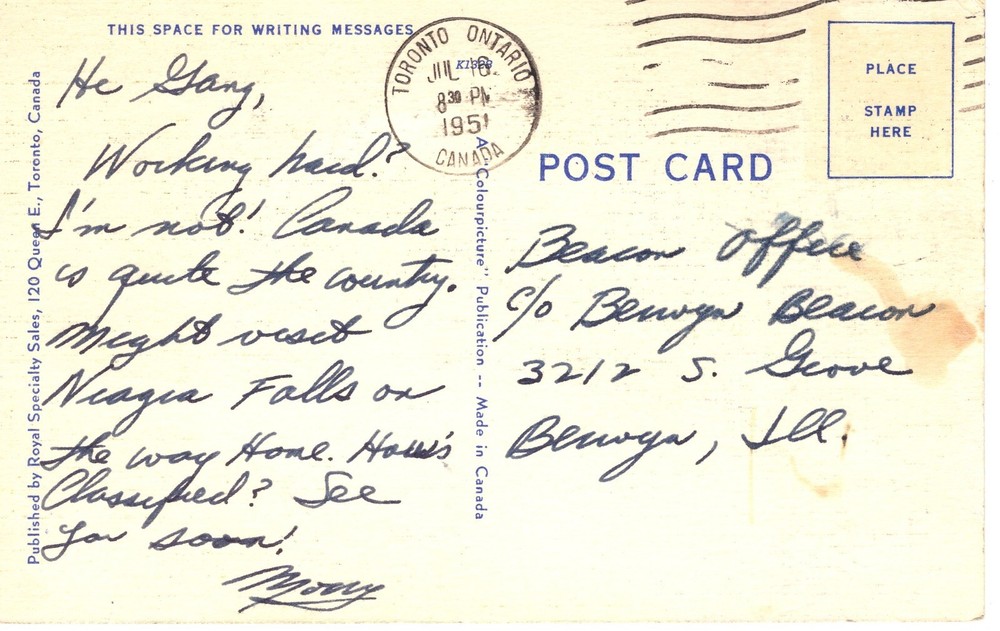 THIS SPACE FOR WRITING MESSAGES
He Gang,
Working hard?
I'm not! Canada
is quite the country.
Might visit
Niagra Falls on
the way Home. How's
Classified? See
you soon!
Published by Royal Specialty Sales, 120 Queen E., Toronto, Canada
TORONTO ONTARIO
JUL
8 30 PM
1951
CANADA
K1323
"Colourpicture" Publication -- Made in Canada
POST CARD
PLACE
STAMP
HERE
Beacon Office
c/o Berwyn Beacon
3212 S. Grove
Berwyn, Ill.